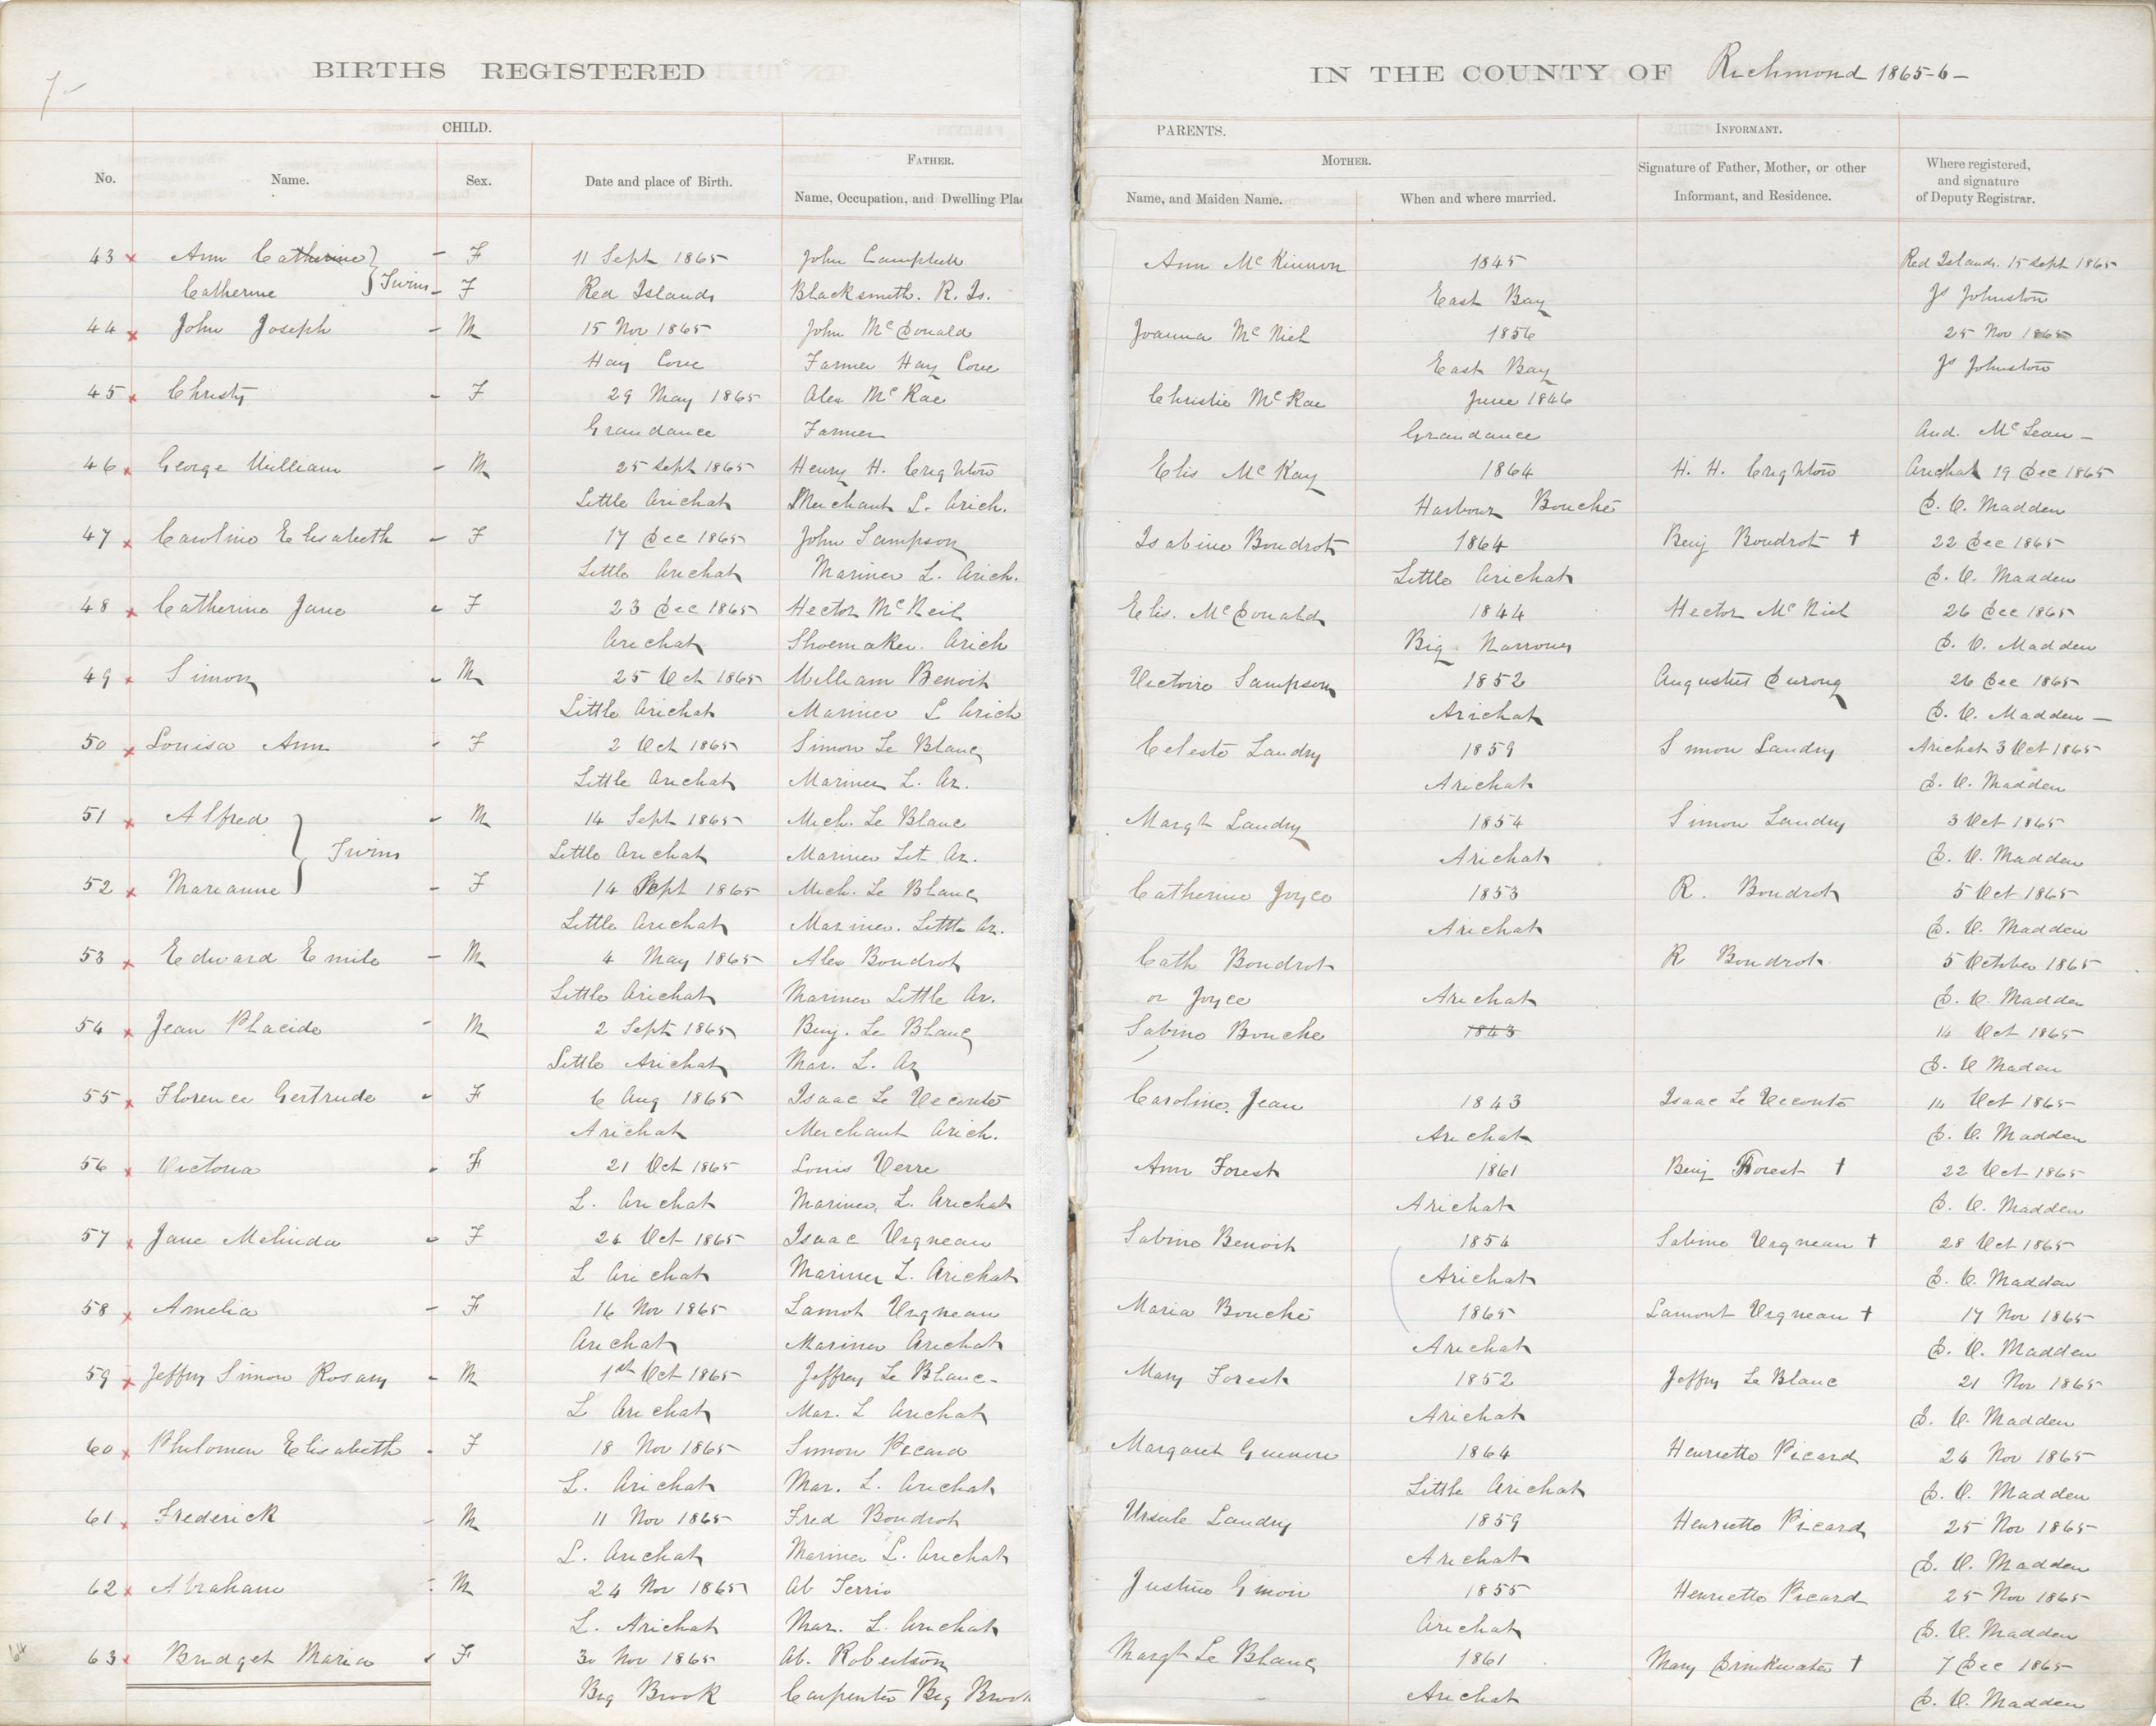 BIRTHS REGISTERED IN THE COUNTY OF Richmond 1865-6-
CHILD. PARENTS. INFORMANT.
No. Name. Sex. Date and place of Birth. FATHER. Name, Occupation, and Dwelling Plac MOTHER. Name, and Maiden Name. When and where married. Signature of Father, Mother, or other Informant, and Residence. Where registered, and signature of Deputy Registrar.
43 Ann Catherine - F 11 Sept 1865 John Campbell Ann McKinnon 1845 Red Islands. 15 Sept 1865
Catherine } Twins - F Red Islands Blacksmith. R. Is. East Bay Js Johnston
44 John Joseph - M 15 Nov 1865 John McDonald Joanna McNiel 1856 25 Nov 1865
Hay Cove Farmer Hay Cove East Bay Js Johnston
45 Christy - F 29 May 1865 Alex McRae Christie McRae June 1846
Grandance Farmer Grandance And. McLean -
46 George William - M 25 Sept 1865 Henry H. Crighton Elis McKay 1864 H. H. Crighton Arichat 19 Dec 1865
Little Arichat Merchant L. Arich. Harbour Bouché D. O. Madden
47 Caroline Elisabeth - F 17 Dec 1865 John Sampson Isabine Boudrot 1864 Benj Boudrot † 22 Dec 1865
Little Arichat Mariner L. Arich. Little Arichat D. O. Madden
48 Catherine Jane - F 23 Dec 1865 Hector McNeil Elis. McDonald 1844 Hector McNiel 26 Dec 1865
Arichat Shoemaker. Arich Big Narrows D. O. Madden
49 Simon - M 25 Oct 1865 William Benoit Victoire Sampson 1852 Augustus Durong 26 Dec 1865
Little Arichat Mariner L Arich Arichat D. O. Madden -
50 Louisa Ann - F 2 Oct 1865 Simon Le Blanc Celeste Landry 1859 Simon Landry Arichat 3 Oct 1865
Little Arichat Mariner L. Ar. Arichat D. O. Madden
51 Alfred - M 14 Sept 1865 Mich. Le Blanc Margt Landry 1854 Simon Landry 3 Oct 1865
} Twins Little Arichat Mariner Lit Ar. Arichat D. O. Madden
52 Marianne - F 14 Sept 1865 Mich. Le Blanc Catherine Joyce 1853 R. Boudrot 5 Oct 1865
Little Arichat Mariner. Little Ar. Arichat D. O. Madden
53 Edward Emile - M 4 May 1865 Alex Boudrot Cath Boudrot R Boudrot 5 October 1865
Little Arichat Mariner Little Ar. or Joyce Arichat D. O. Madden
54 Jean Placide - M 2 Sept 1865 Benj. Le Blanc Sabine Bouche 1843 14 Oct 1865
Little Arichat Mar. L. Ar D. O Maden
55 Florence Gertrude - F 6 Aug 1865 Isaac Le Veconte Caroline. Jean 1843 Isaac Le Veconte 14 Oct 1865
Arichat Merchant Arich. Arichat D. O. Madden
56 Victoria - F 21 Oct 1865 Louis Verre Ann Forest 1861 Benj Forest † 22 Oct 1865
L. Arichat Mariner, L. Arichat Arichat D. O. Madden
57 Jane Melinda - F 24 Oct 1865 Isaac Vigneau Sabine Benoit 1854 Sabine Vigneau † 28 Oct 1865
L Arichat Mariner L. Arichat Arichat D. O. Madden
58 Amelia - F 16 Nov 1865 Lamot Vigneau Maria Bouché 1865 Lamont Vigneau † 17 Nov 1865
Arichat Mariner Arichat Arichat D. O. Madden
59 Jeffry Simon Rosary - M 1st Oct 1865 Jeffrey Le Blanc- Mary Forest 1852 Jeffry Le Blanc 21 Nov 1865
L Arichat Mar. L Arichat Arichat D. O. Madden
60 Philomen Elisabeth - F 18 Nov 1865 Simon Picard Margaret 1864 Henriette Picard 24 Nov 1865
L. Arichat Mar. L. Arichat Little Arichat D. O. Madden
61 Frederick - M 11 Nov 1865 Fred Boudrot Ursule Landry 1859 Henriette Picard 25 Nov 1865
L. Arichat Mariner L. Arichat Arichat D. O. Madden
62 Abraham - M 24 Nov 1865 Ab Terrio Justine 1855 Henriette Picard 25 Nov 1865
L. Arichat Mar. L. Arichat Arichat D. O. Madden
63 Bridget Maria - F 30 Nov 1865 Ab. Robertson Margt Le Blanc 1861 Mary Drinkwater † 7 Dec 1865
Big Brook Carpenter Big Brook Arichat D. O. Madden